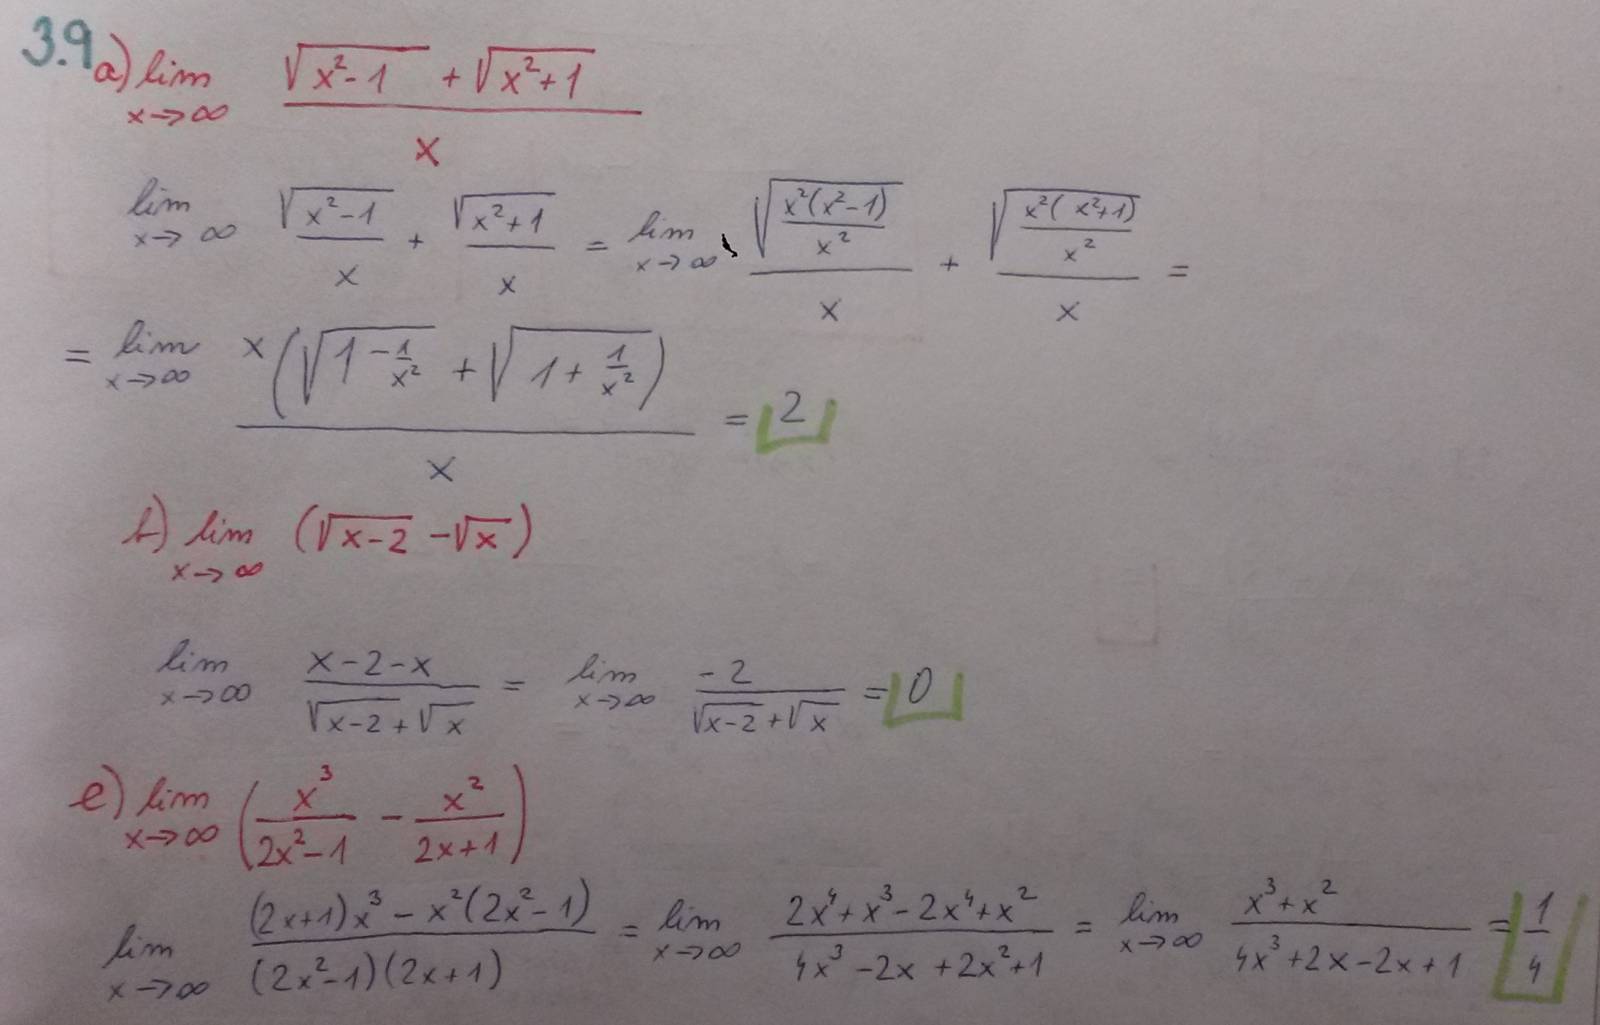 3.9 a) lim x→∞ (√(x²-1) + √(x²+1)) / x
lim x→∞ √(x²-1) / x + √(x²+1) / x = lim x→∞ √(x²(x²-1) / x²) / x + √(x²(x²+1) / x²) / x =
= lim x→∞ x(√(1-1/x²) + √(1+1/x²)) / x = 2
b) lim x→∞ (√(x-2) - √x)
lim x→∞ (x-2-x) / (√(x-2) + √x) = lim x→∞ -2 / (√(x-2) + √x) = 0
e) lim x→∞ (x³ / (2x²-1) - x² / (2x+1))
lim x→∞ ((2x+1)x³ - x²(2x²-1)) / ((2x²-1)(2x+1)) = lim x→∞ (2x⁴+x³-2x⁴+x²) / (4x³-2x+2x²+1) = lim x→∞ (x³+x²) / (4x³+2x-2x+1) = 1/4